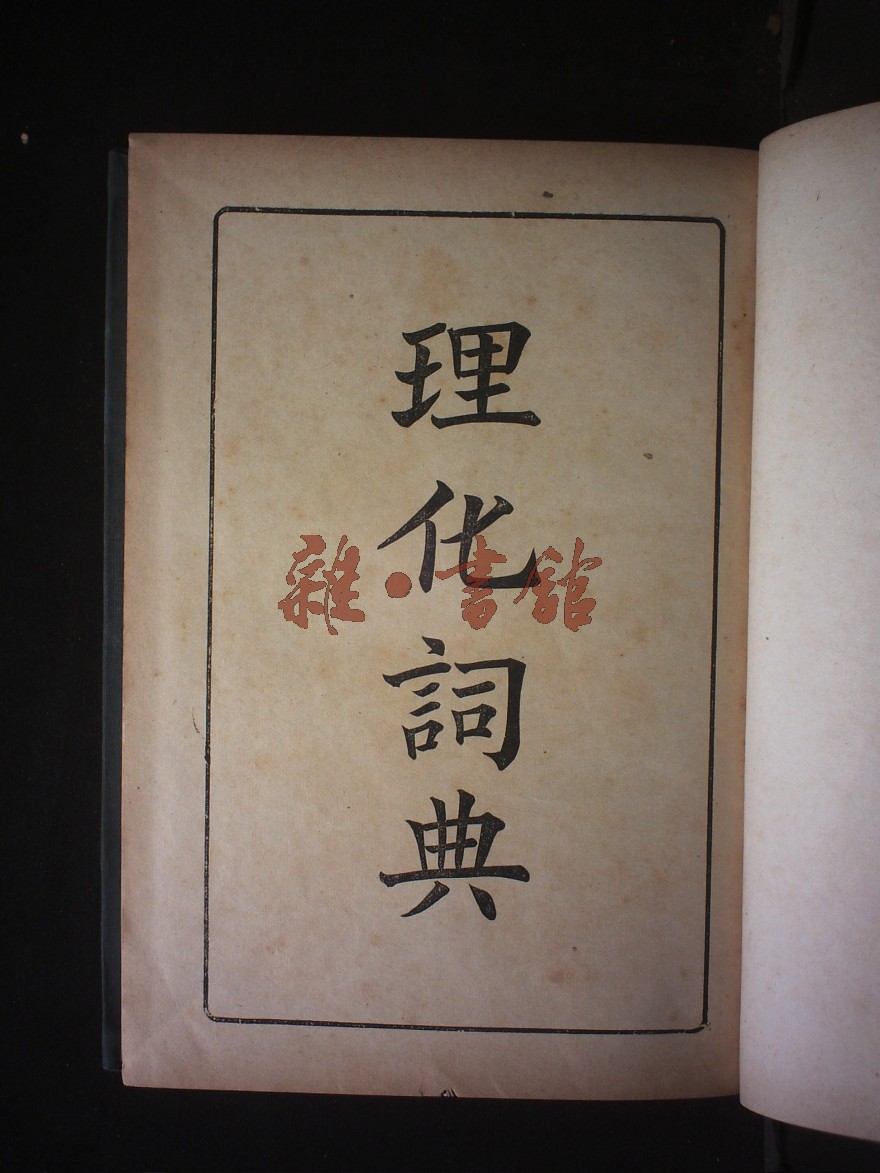 理化詞典
雜·書館